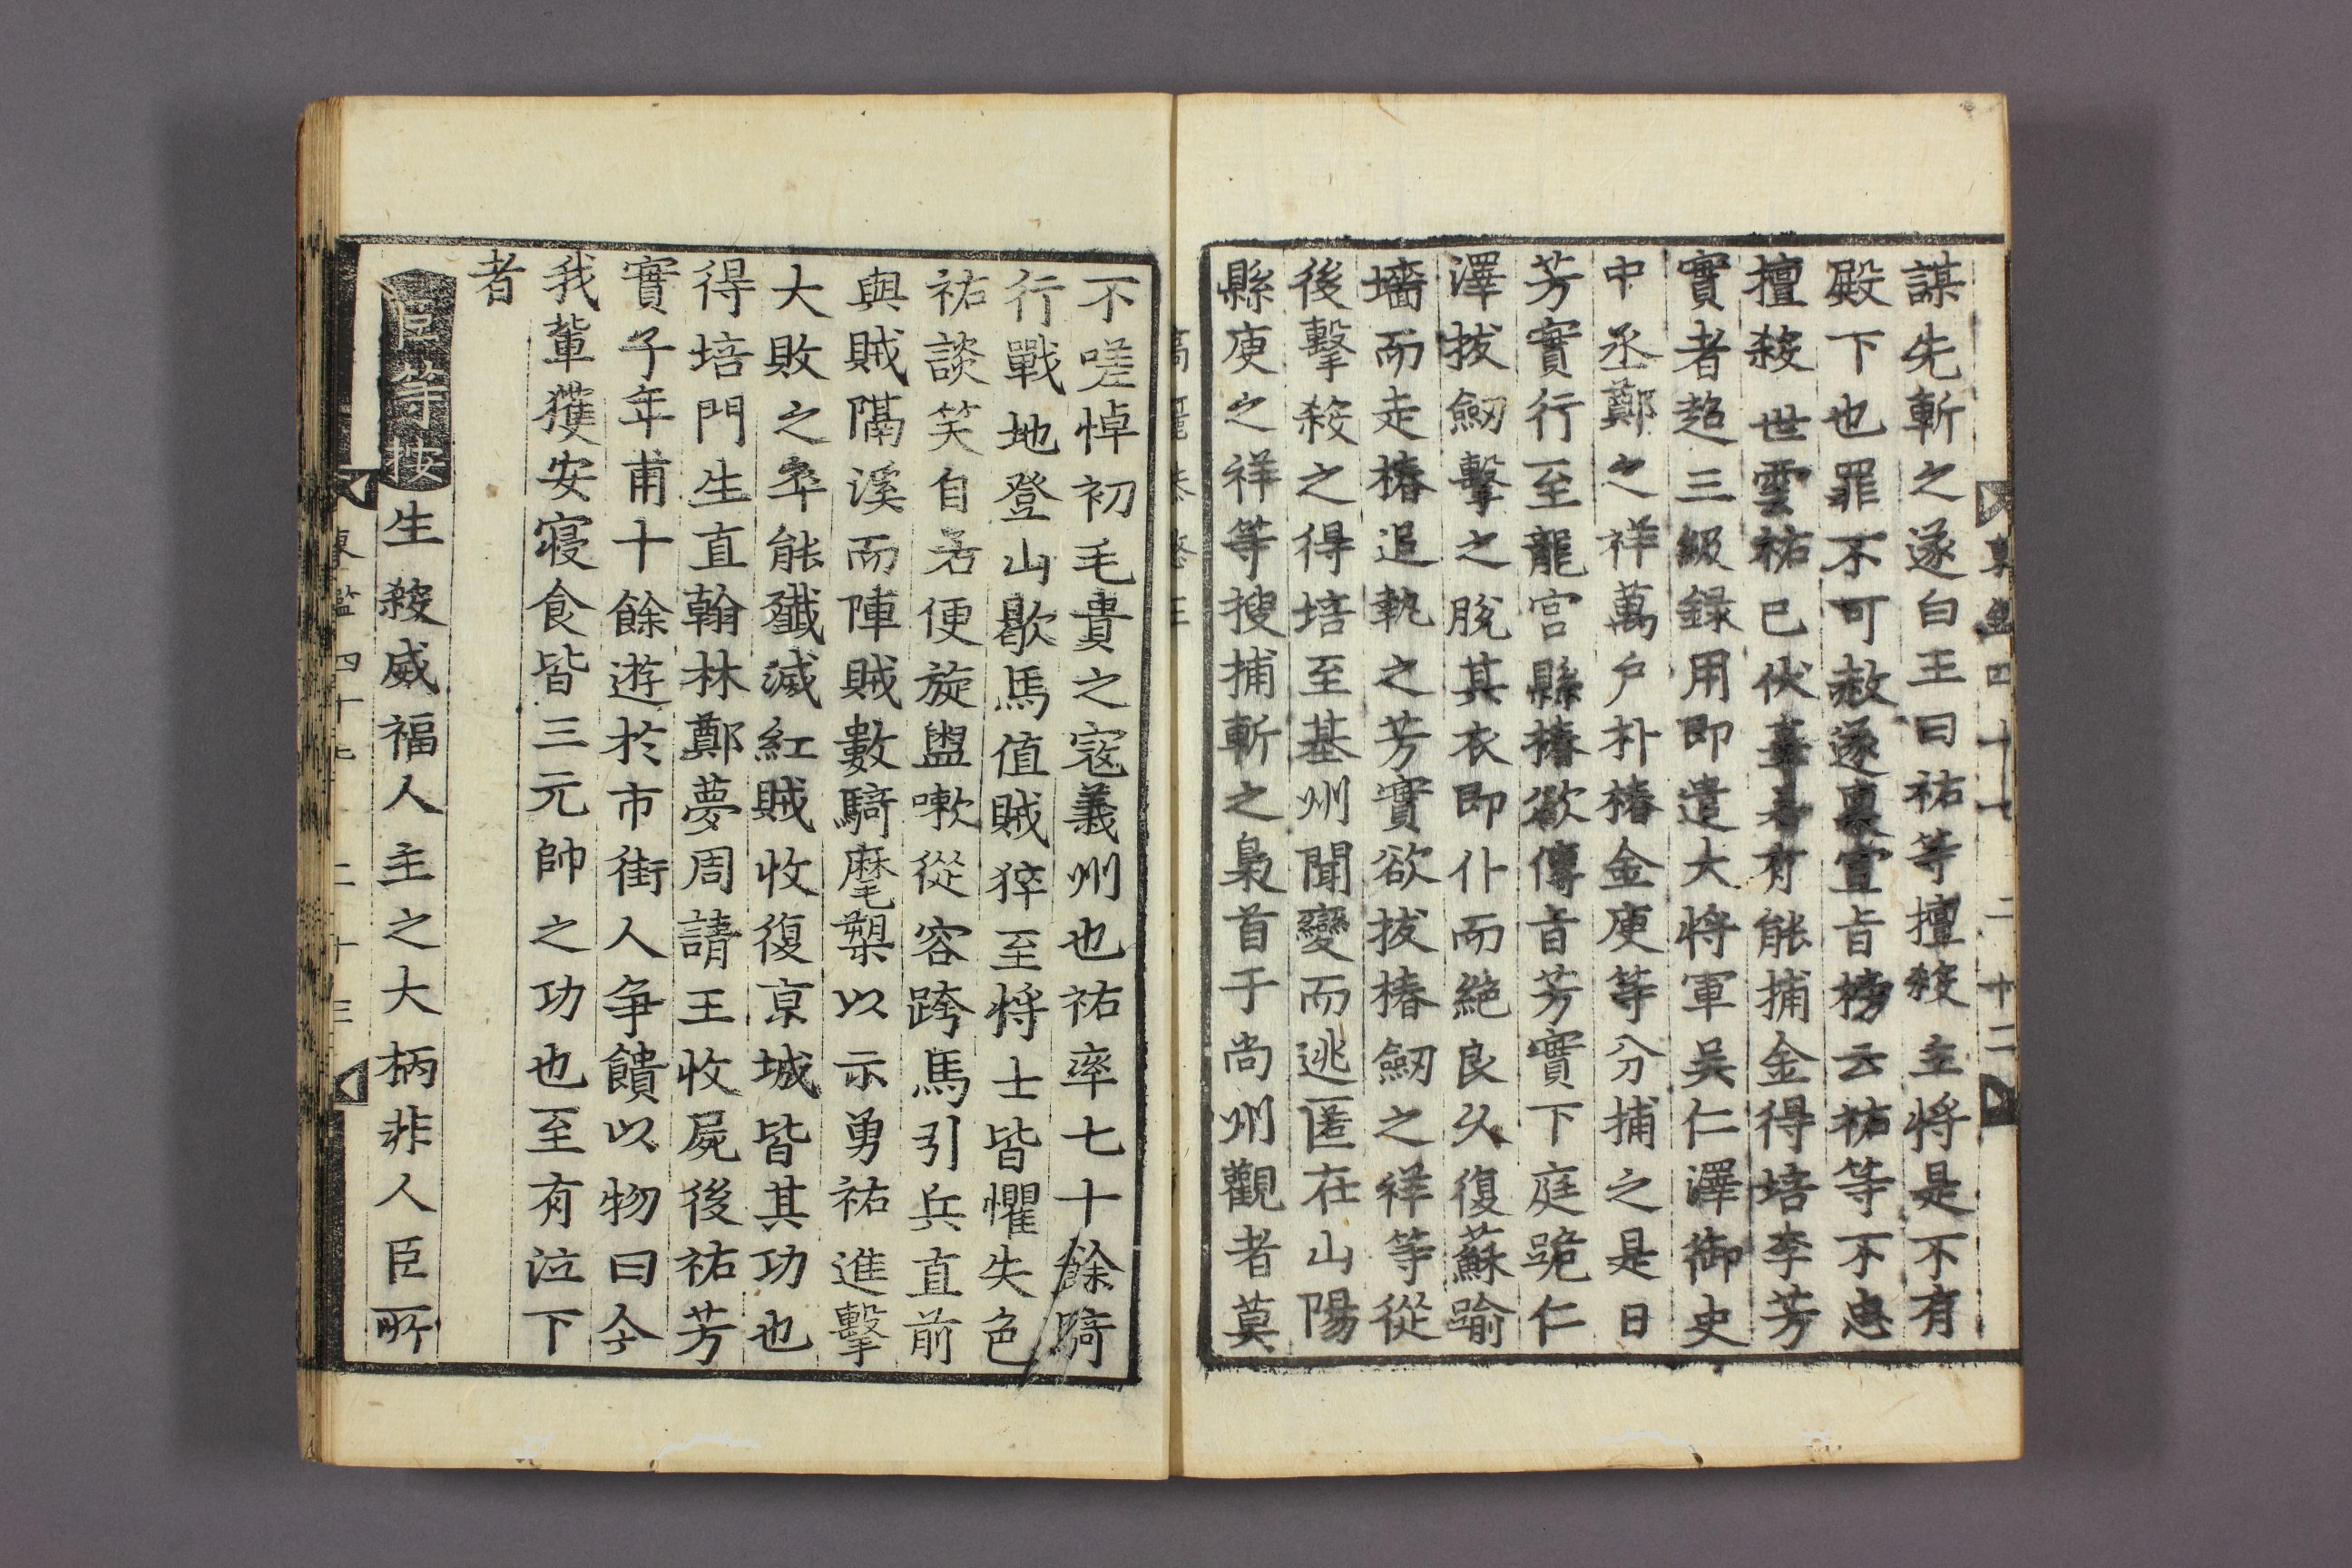 東鑑四十七 二十二
謀先斬之遂白王曰祐等擅殺主將是不有
殿下也罪不可赦遂稟宣旨榜云祐等不忠
擅殺世雲祐已伏辜若有能捕金得培李芳
實者超三級錄用即遣大將軍吳仁澤御史
中丞鄭之祥萬戶朴椿金庾等分捕之是日
芳實行至龍宮縣椿欲傳旨芳實下庭跪仁
澤拔劒擊之脫其衣即仆而絶良久復蘇踰
墻而走椿追執之芳實欲拔椿劒之祥等從
後擊殺之得培至基州聞變而逃匿在山陽
縣庾之祥等搜捕斬之梟首于尚州觀者莫
不嗟悼初毛貴之寇義州也祐率七十餘騎
行戰地登山歇馬值賊猝至將士皆懼失色
祐談笑自若便旋盥嗽從容跨馬引兵直前
與賊隔溪而陣賊數騎麾槊以示勇祐進擊
大敗之卒能殲滅紅賊收復京城皆其功也
得培門生直翰林鄭夢周請王收屍後祐芳
實子年甫十餘遊於市街人争饋以物曰今
我輩獲安寢食皆三元帥之功也至有泣下
者
臣等按生殺威福人主之大柄非人臣所
東鑑四十七 二十三